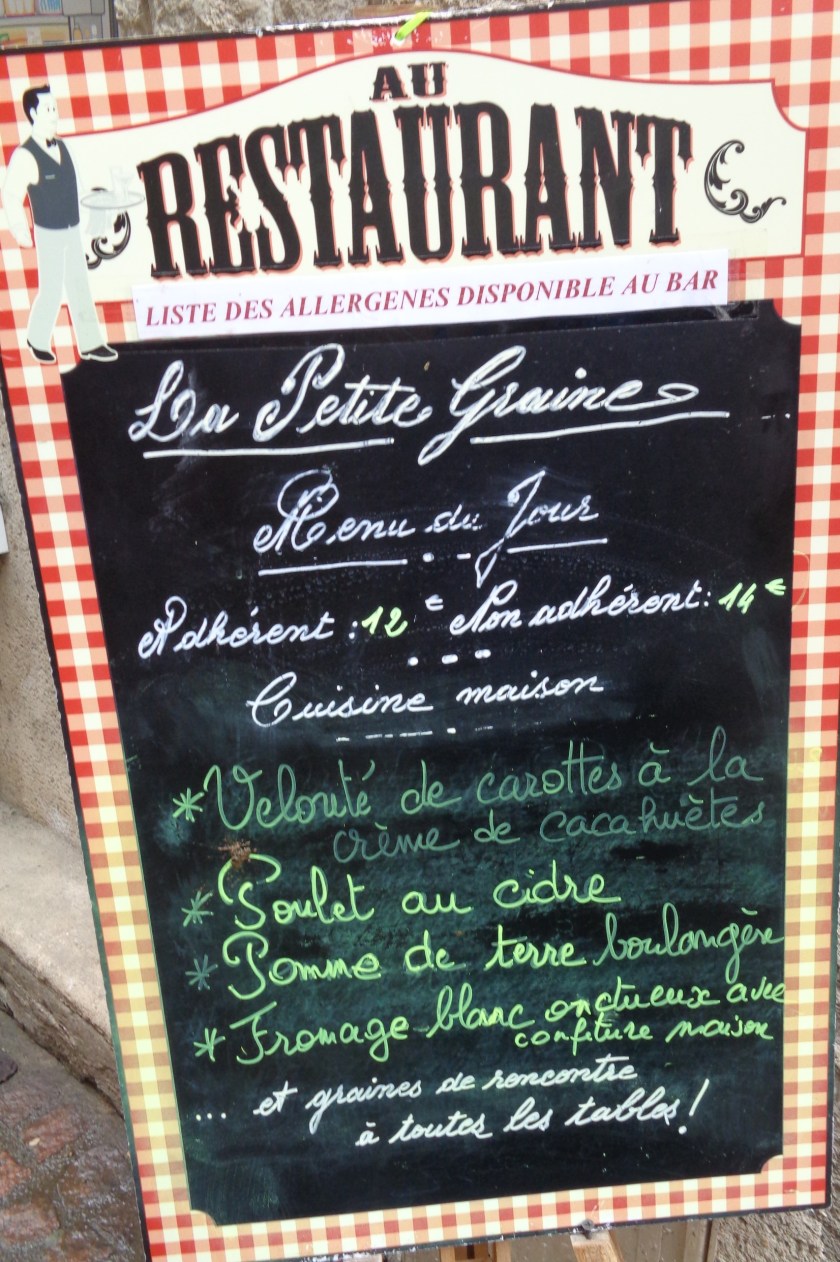 AU
RESTAURANT
LISTE DES ALLERGENES DISPONIBLE AU BAR
La Petite Graine
Menu du Jour
Adhérent : 12 € Non adhérent : 14 €
Cuisine maison
* Velouté de carottes à la
crème de cacahuètes
* Poulet au cidre
* Pomme de terre boulangère
* Fromage blanc onctueux avec
confiture maison
... et graines de rencontre
à toutes les tables !